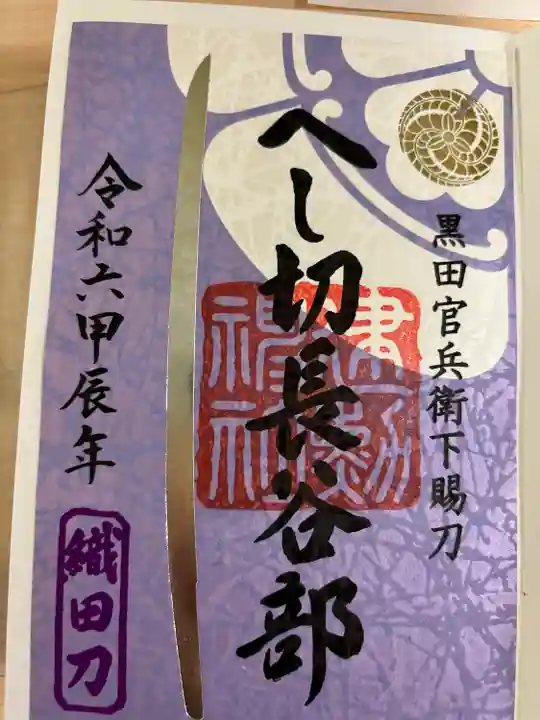 黒田官兵衛下賜刀
へし切長谷部
建勲神社
令和六甲辰年
織田刀